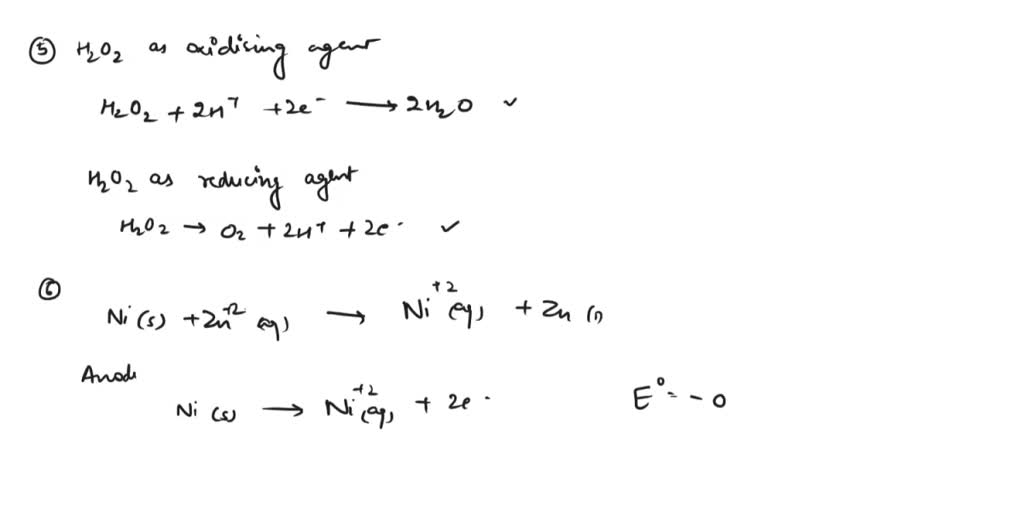 ⑤ H₂O₂ as oxidising agent
H₂O₂ + 2H⁺ + 2e⁻ ⟶ 2H₂O ✓
H₂O₂ as reducing agent
H₂O₂ → O₂ + 2H⁺ + 2e⁻ ✓
⑥
Ni(s) + Zn⁺²(aq) ⟶ Ni⁺²(aq) + Zn(s)
Anode
Ni(s) ⟶ Ni⁺²(aq) + 2e⁻ E⁰= -0